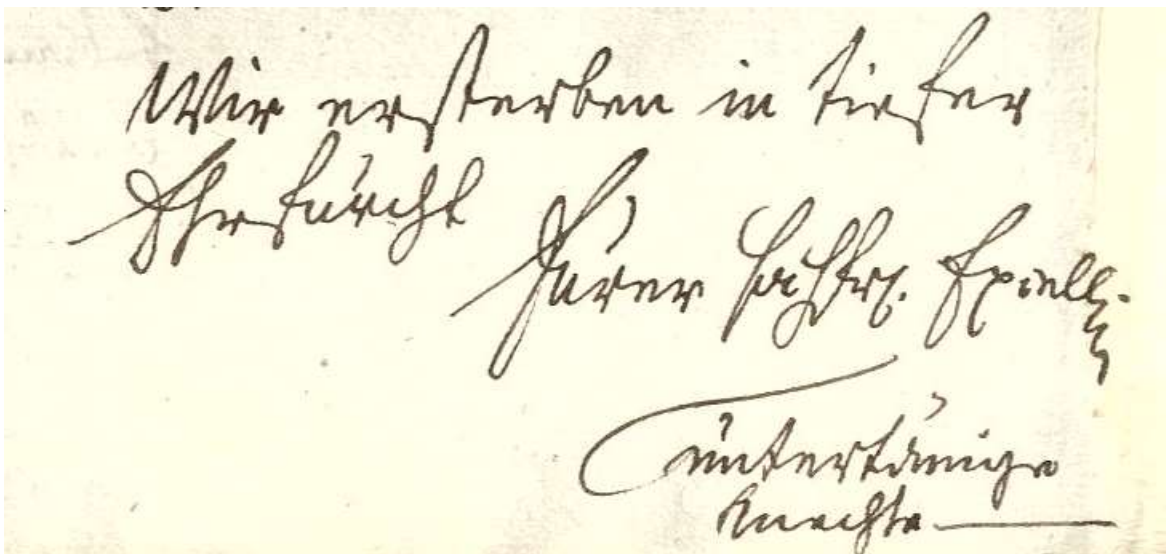 Wir ersterben in tiefer
Ehrfurcht
Eurer Hochfrl. Excell.
untertänige
Knechte